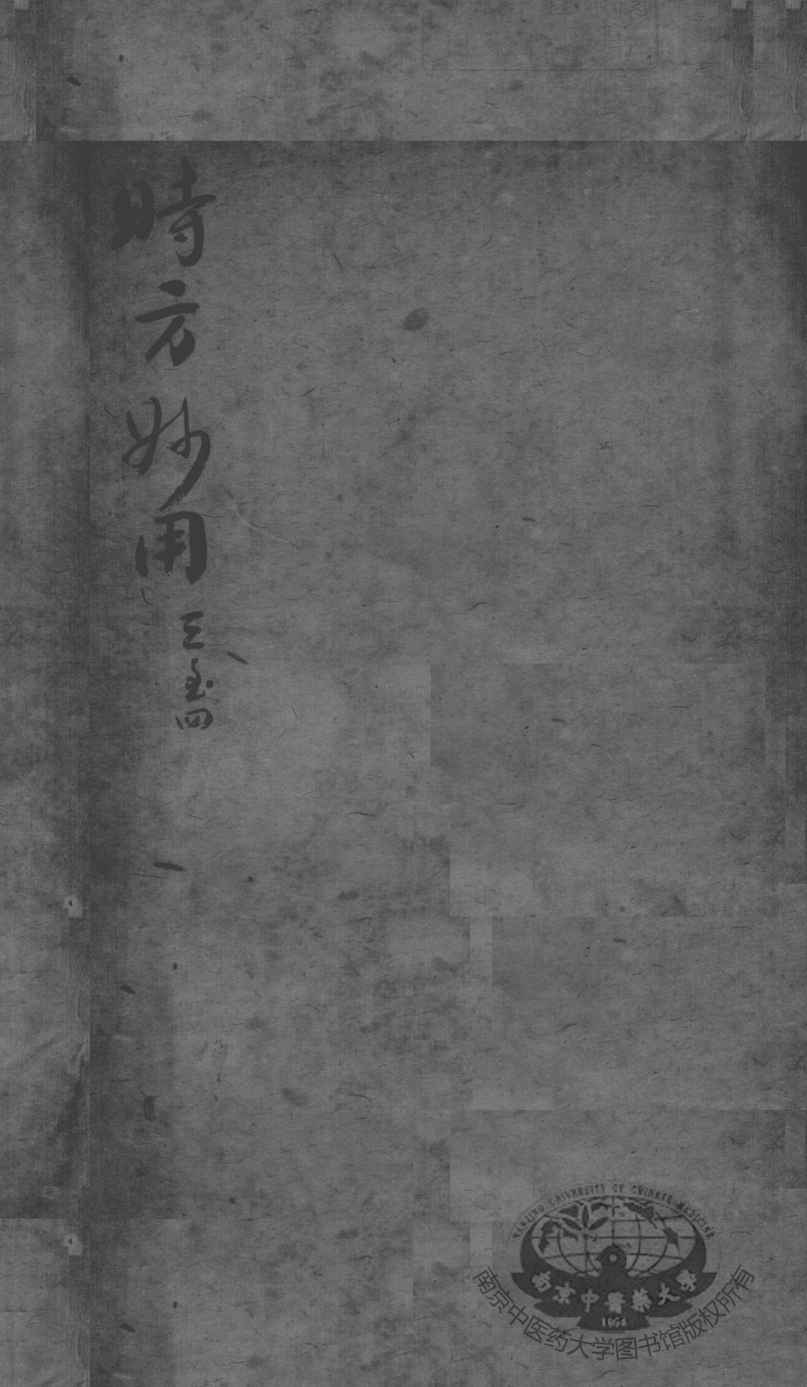 時方妙用 三至四
NANJING UNIVERSITY OF CHINESE MEDICINE
南京中醫藥大學
1954
南京中医药大学图书馆版权所有